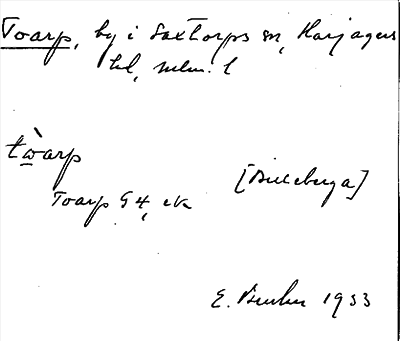 Toarp, by i Saxtorps sn, Harjagers
hd, Mlm. l
tẁarp
Toarp G 4, ek [Billeberga]
E. 1933